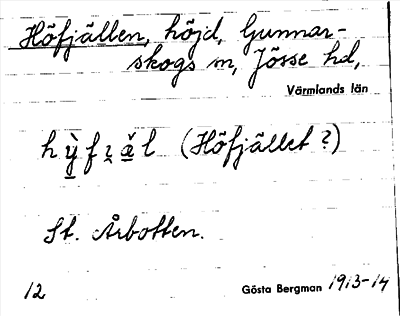 Höfjällen, höjd, Gunnar-
skogs m, Jösse hd,
Värmlands län
(Höfjället?)
St. Årbotten.
12 Gösta Bergman 1913-14